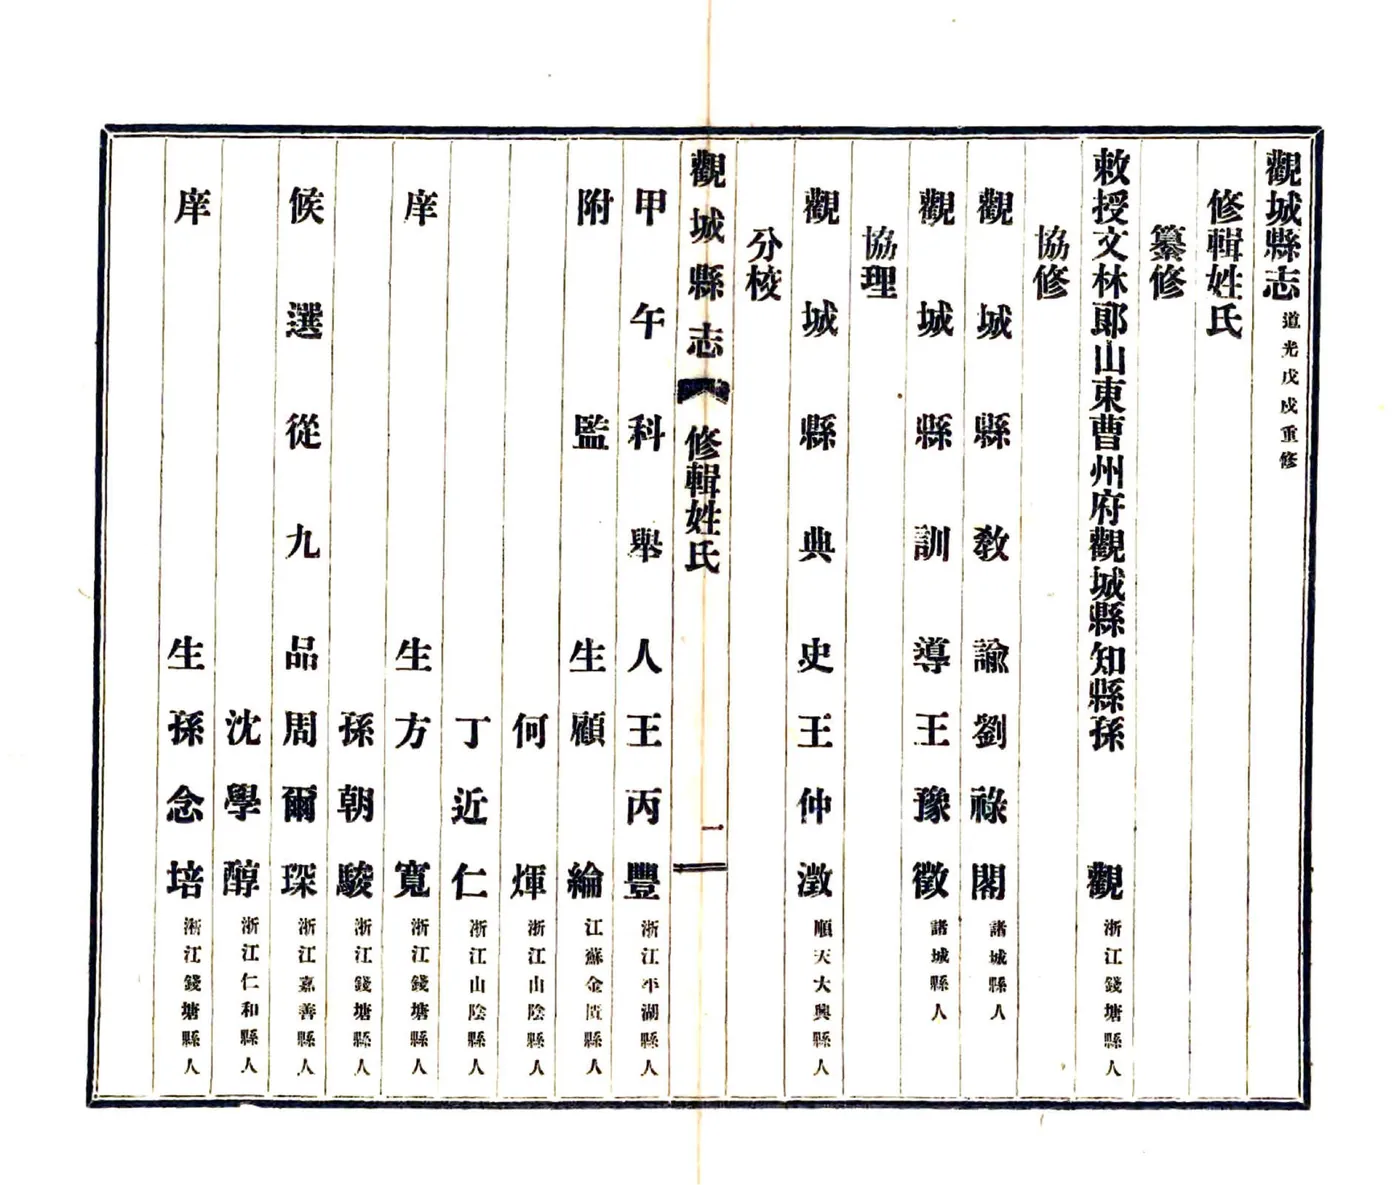 觀城縣志道光戊戌重修
修輯姓氏
纂修
敕授文林郎山東曹州府觀城縣知縣孫觀浙江錢塘縣人
協修
觀城縣教諭劉祿閣諸城縣人
觀城縣訓導王豫徵諸城縣人
協理
觀城縣典史王仲澂順天大興縣人
分校
觀城縣志 修輯姓氏 一
甲午科舉人王丙豐浙江平湖縣人
附監生顧綸江蘇金匱縣人
何煇浙江山陰縣人
丁近仁浙江山陰縣人
庠生方寬浙江錢塘縣人
孫朝駿浙江錢塘縣人
候選從九品周爾琛浙江嘉善縣人
沈學醇浙江仁和縣人
庠生孫念培浙江錢塘縣人